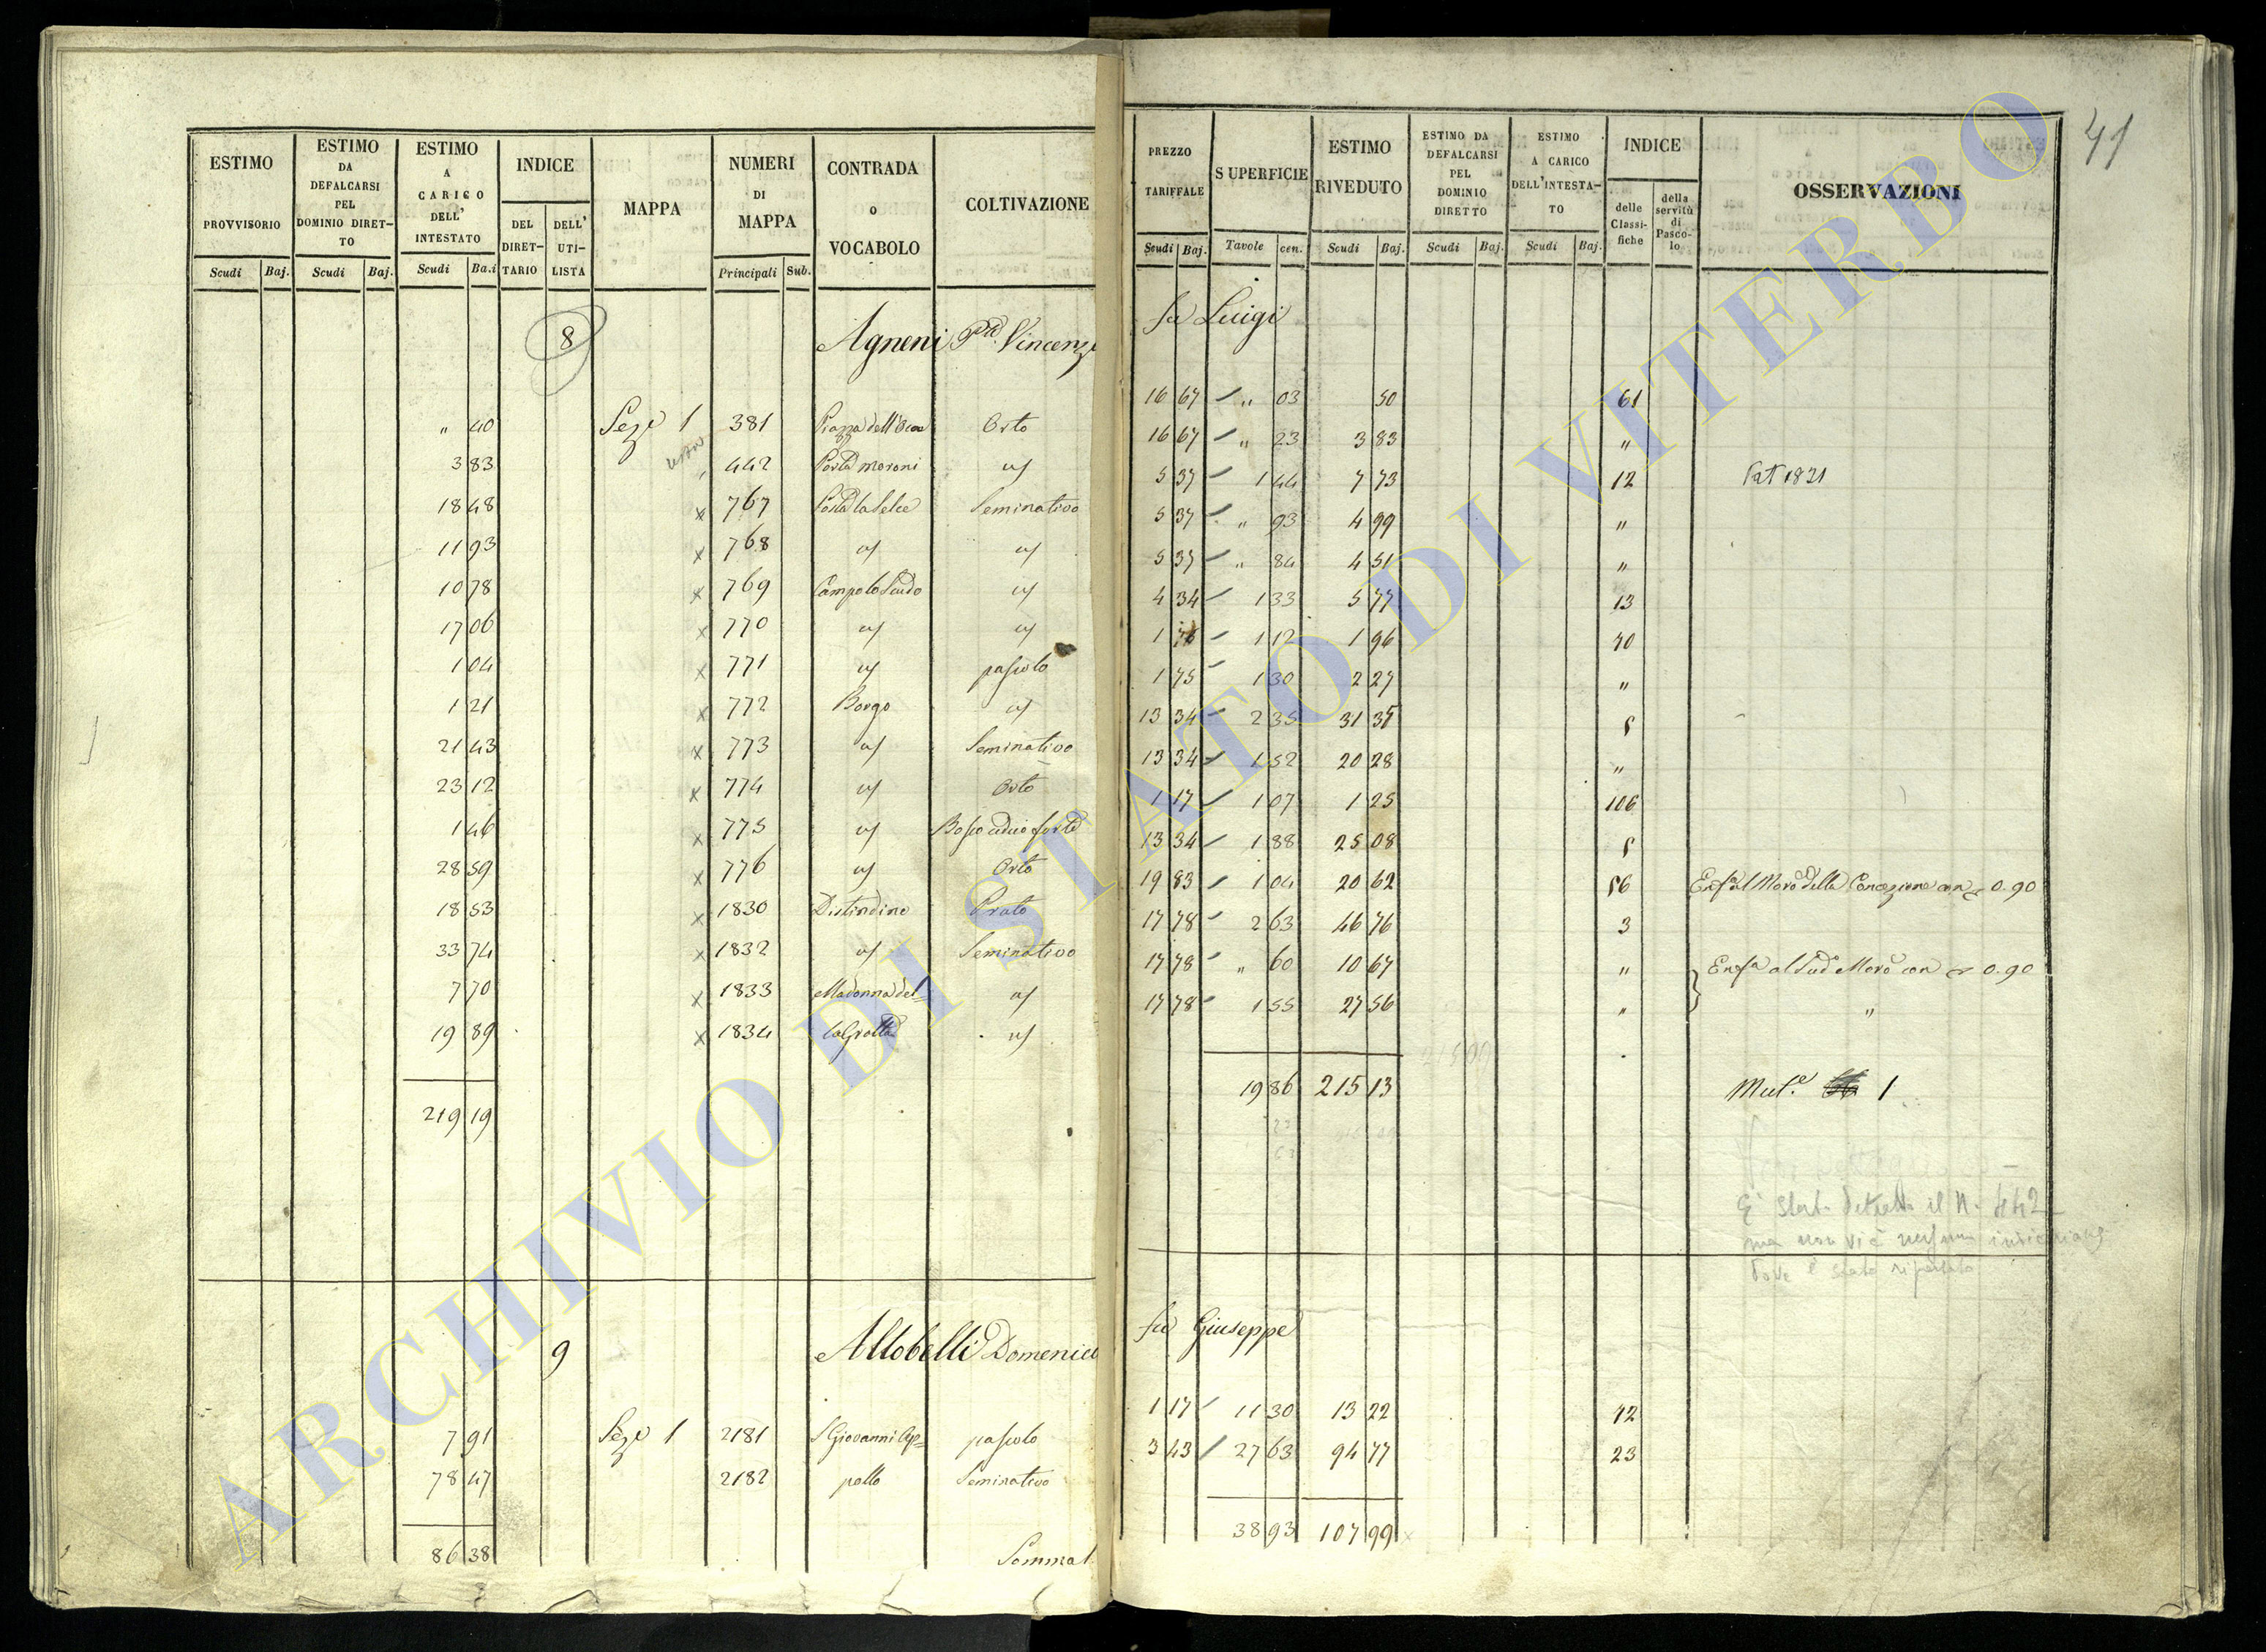 41
ESTIMO PROVVISORIO Scudi Baj.
ESTIMO DA DEFALCARSI PEL DOMINIO DIRETTO Scudi Baj.
ESTIMO A CARICO DELL' INTESTATO Scudi Ba.i
INDICE DEL DIRETTARIO DELL' UTILISTA
MAPPA
NUMERI DI MAPPA Principali Sub.
CONTRADA o VOCABOLO
COLTIVAZIONE
PREZZO TARIFFALE Scudi Baj.
SUPERFICIE Tavole cen.
ESTIMO RIVEDUTO Scudi Baj.
ESTIMO DA DEFALCARSI PEL DOMINIO DIRETTO Scudi Baj.
ESTIMO A CARICO DELL'INTESTATO Scudi Baj.
INDICE delle Classifiche della servitù di Pascolo
OSSERVAZIONI
8 Agneni Vincenzo fu Luigi
" 40 Sez.e 1 381 Piazza dell'Oca Orto 16 67 " 03 50 61
3 83 442 Porta moroni " 16 67 " 23 3 83 "
18 48 x 767 Porta la Selce Seminativo 5 37 1 44 7 73 12
11 93 x 768 " " 5 37 " 93 4 99 "
10 78 x 769 Campo lo Scudo " 5 37 " 84 4 51 "
17 06 x 770 " " 4 34 1 33 5 77 13
1 04 x 771 " pascolo 1 75 1 12 1 96 40
1 21 x 772 Borgo " 1 75 1 30 2 27 "
21 43 x 773 " Seminativo 13 34 2 35 31 35 5
23 12 x 774 " Orto 13 34 1 52 20 28 "
1 46 x 775 " Bosco ceduo forte 1 17 1 07 1 25 106
28 59 x 776 " Orto 13 34 1 88 25 08 5
18 53 x 1830 Distendino Prato 19 83 1 04 20 62 56 della Concezione con 0.90
33 74 x 1832 " Seminativo 17 78 2 63 46 76 3
7 70 x 1833 Madonna del= " 17 78 " 60 10 67 " Enf.a al Sud.o con 0.90
19 89 x 1834 la Grotta " 17 78 1 55 27 56 " "
219 19 19 86 215 13
1
il N. 442
ma non vi è
dove è stato riportato
9 Altobelli Domenico fu Giuseppe
7 91 Sez.e 1 2181 S Giovanni Ap= pascolo 1 17 11 30 13 22 42
78 47 2182 pollo Seminativo 3 43 27 63 94 77 23
86 38 38 93 107 99
ARCHIVIO DI STATO DI VITERBO